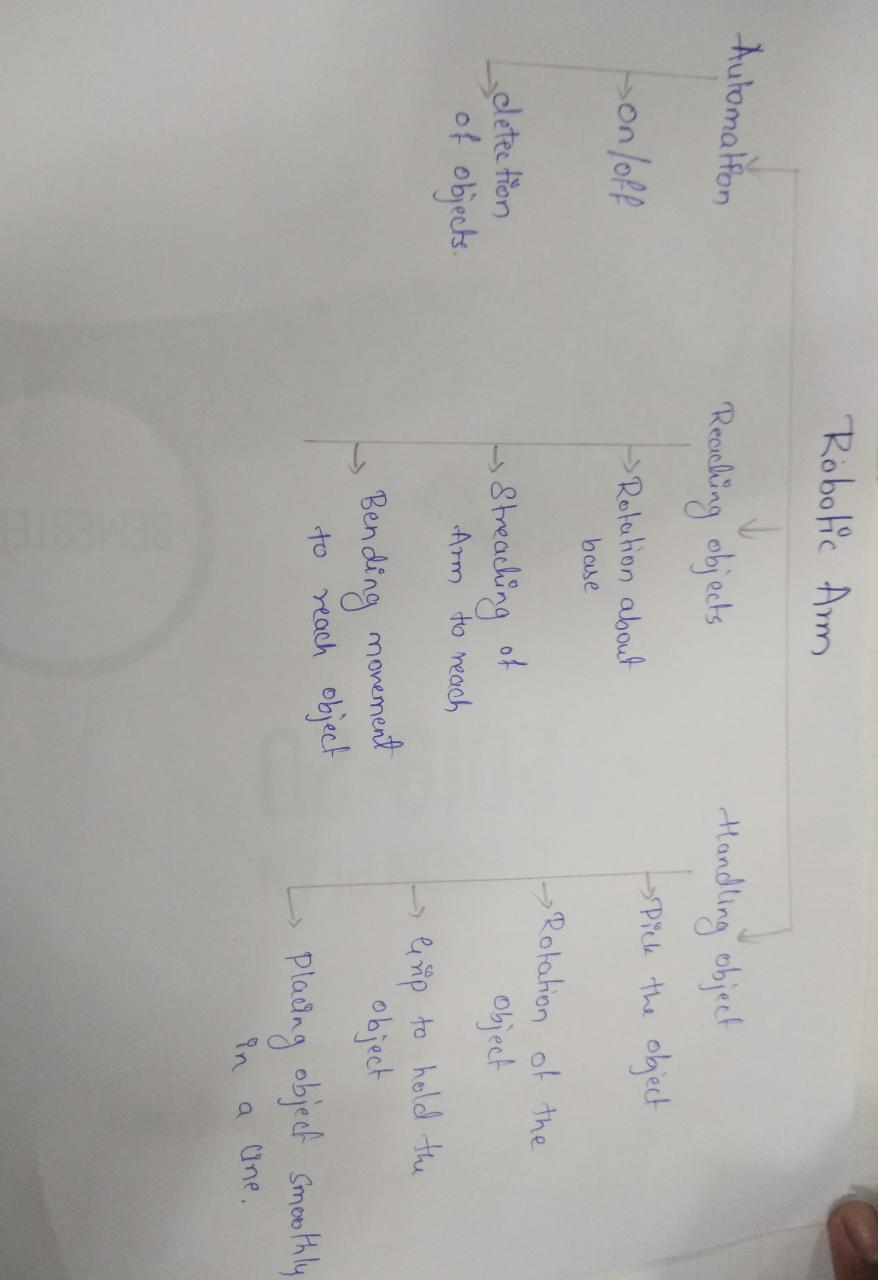 Robotic Arm
Automation
on/off
detection
of objects.
Reaching objects
Rotation about
base
Streaching of
Arm to reach
Bending movement
to reach object
Handling object
Pick the object
Rotation of the
object
Grip to hold the
object
Placing object smoothly
in a line.